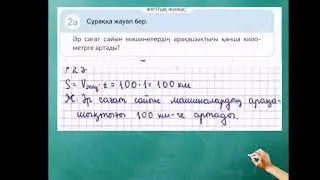 ЖҰПТЫҚ ЖҰМЫС
2а Сұраққа жауап бер.
Әр сағат сайын машинелердің арақашықтығы қанша кило-
метрге артады?
S = Vжақ · t = 100 · 1 = 100 км
Ж: Әр сағат сайын машиналардың арақа-
шықтығы 100 км-ге артады.